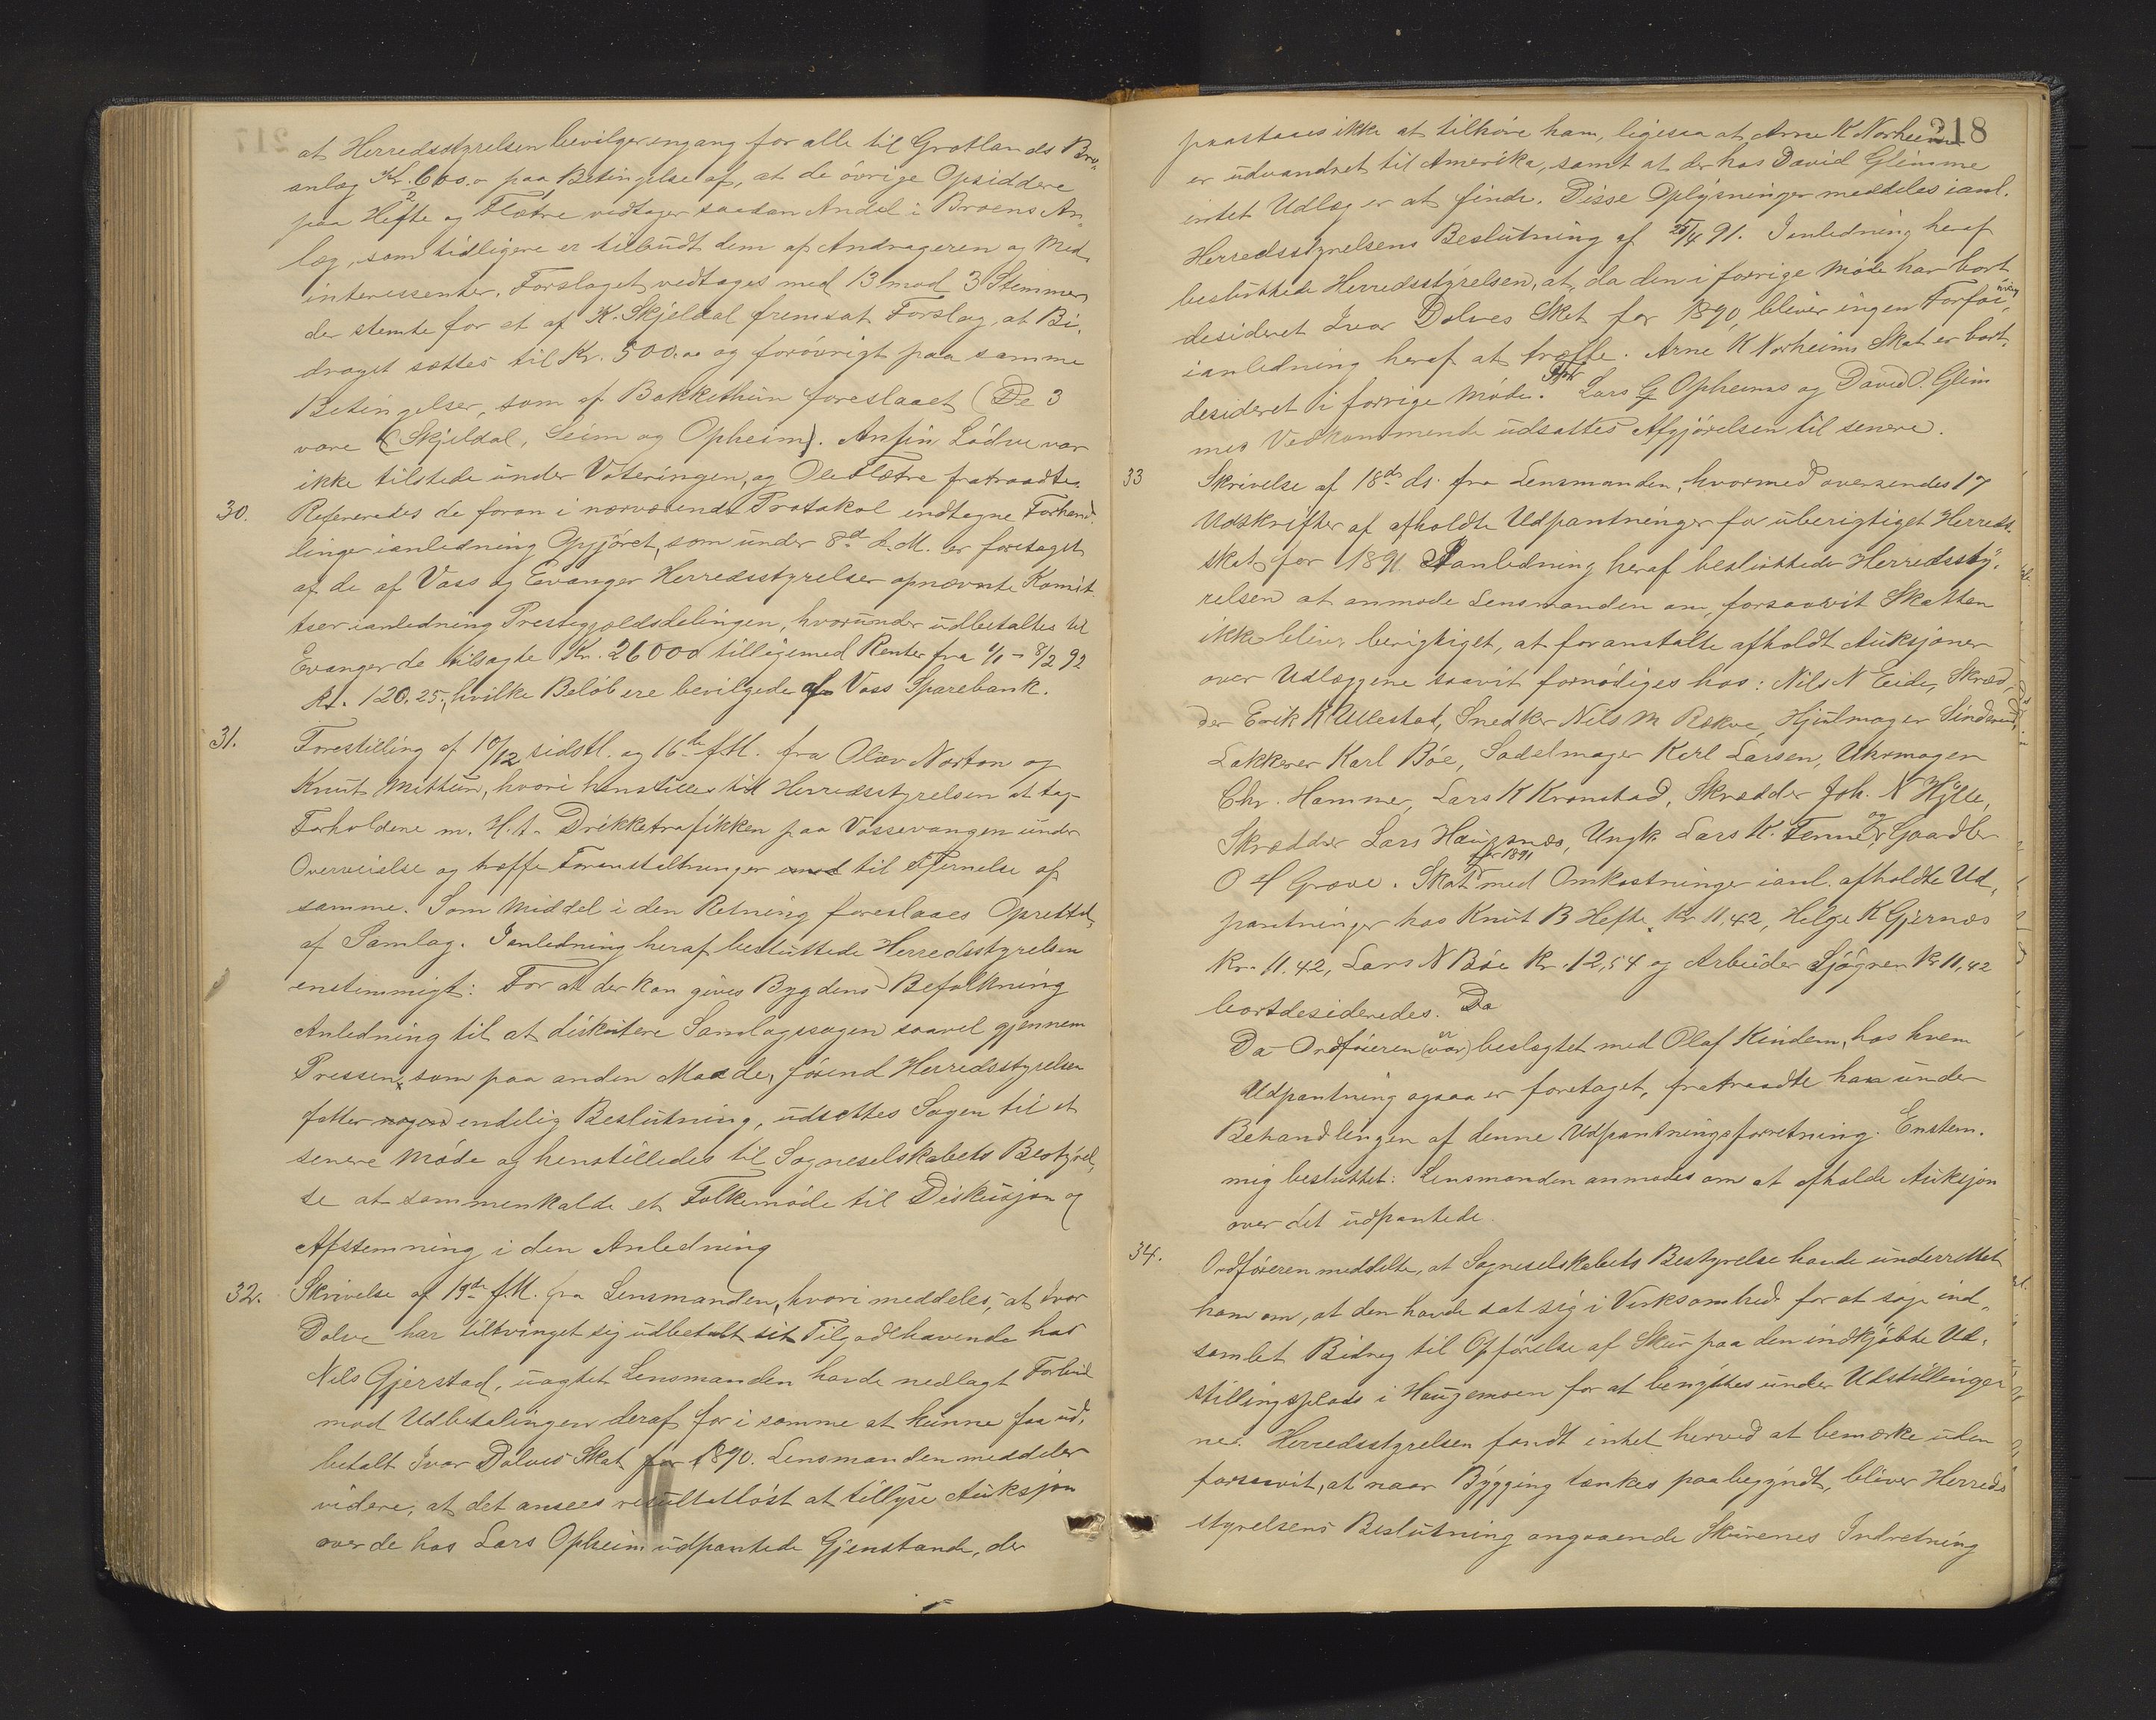 at Herredsstyrelsen bevilger engang for alle til Grotlands Bro-
anlæg Kr. 600.- paa Betingelse af, at de övrige Opsiddere
paa Hefte og Flætre vedtager saadan Andel i Broens An-
læg, som tidligere er tilbudt dem af Andrageren og Med-
interessenter. Forslaget vedtages med 13 mod 3 Stemmer,
der stemte for et af K. Skjeldal fremsat Forslag, at Bi-
draget sættes til Kr. 500.00 og forövrigt paa samme
Betingelser, som af Bakkethun foreslaaet (De 3
vare (Skjeldal, Seim og Opheim). Anfin Lödve var
ikke tilstede under Voteringen, og Ole Flætre fratraadte.
30. Refereredes de foran i nærværende Protokol indtagne Forhand-
linger ianledning Opgjöret, som under 8de d.M. er foretaget
af de af Voss og Evanger Herredsstyrelser opnævnte Komit-
teer ianledning Prestegjældsdelingen, hvorunder udbetaltes til
Evanger de tilsagte Kr. 26000 tilligemed Renter fra 1/1 - 8/2 92
Kr. 120.25, hvilke Belöb ere bevilgede af Voss Sparebank.
31. Forestilling af 10/12 sidstl. og 16de f.M. fra Olav Norton og
Knut Mittun, hvori henstilles til Herredsstyrelsen at tage
Forholdene m. H. t. Drikketrafikken paa Vossevangen under
Overveielse og træffe Foranstaltninger mod til Fjernelse af
samme. Som Middel i den Retning foreslaaes Oprettelse
af Samlag. Ianledning heraf besluttede Herredsstyrelsen
enstemmigt: For at der kan gives Bygdens Befolkning
Anledning til at diskutere Samlagssagen saavel gjennem
Pressen, som paa anden Maade, förend Herredsstyrelsen
fatter nogen endelig Beslutning, udsættes Sagen til et
senere Möde og henstilledes til Sogneselskabets Bestyrel-
se at sammenkalde et Folkemöde til Diskusjon og
Afstemning i den Anledning
32. Skrivelse af 19de f.M. fra Lensmanden, hvori meddeles, at Ivar
Dolve har tiltvinget sig udbetalt sit Tilgodehavende hos
Nils Gjerstad, uagtet Lensmanden havde nedlagt Forbud
mod Udbetalingen deraf for i samme at kunne faa ud-
betalt Ivar Dolves Skat for 1890. Lensmanden meddeler
videre, at det ansees resultatlöst at tillyse Auksjon
over de hos Lars Opheim udpantede Gjenstande, der
218
paastaaes ikke at tilhöre ham, ligesaa at Arne K Norheim
er udvandret til Amerika, samt at der hos David Glimme
intet Udlæg er at finde. Disse Oplysninger meddeles ianl.
Herredsstyrelsens Beslutning af 25/4 91. Ianledning heraf
besluttede Herredsstyrelsen, at, da den i forrige Möde har bort-
desideret Ivar Dolves Skat for 1890, bliver ingen Forföi-
ning
ianledning heraf at træffe. Arne K Norheims Skat er bort-
desideret i forrige Möde. For Lars G Opheims og David O. Glim
mes Vedkommende udsattes Afgjörelsen til senere.
33 Skrivelse af 18de ds. fra Lensmanden, hvormed oversendes 17
Udskrifter af afholdte Udpantninger for uberigtiget Herreds-
skat for 1891. Ianledning heraf besluttede Herredssty-
relsen at anmode Lensmanden om, forsaavit Skatten
ikke bliver berigtiget, at foranstalte afholdt Auksjoner
over Udlæggene saavit fornödiges hos: Nils N Eide, Skræd-
der Erik K Ullestad, Snedker Nils M Rekve, Hjulmager Sindre
Lakkerer Karl Böe, Sadelmager Karl Larsen, Uhrmager
Chr. Hammer, Lars K Kronstad, Skrædder Joh. N Hylle,
Skrædder Lars Haugsnæs, Ungk. Lars K. Tenne og Gaardbr
O H Grove. Skat for 1891 med Omkostninger ianl. afholdte Ud-
pantninger hos Knut B Hefte Kr. 11,42, Helge K Gjernæs
Kr. 11.42, Lars N Böe Kr. 12,54 og Arbeider Sjögren Kr 11,42
bortdesideredes. Da
Da Ordföreren (var) er beslægtet med Olaf Kindem, hos hvem
Udpantning ogsaa er foretaget, fratraadte han under
Behandlingen af denne Udpantningsforretning. Enstem-
mig besluttet: Lensmanden anmodes om at afholde Auksjon
over det udpantede.
34. Ordföreren meddelte, at Sogneselskabets Bestyrelse havde underrettet
ham om, at den havde sat sig i Virksomhed for at söge ind-
samlet Bidrag til Opförelse af Skur paa den indkjöbte Ud-
stillingsplads i Haugemoen for at benyttes under Udstillinger
ne. Herredsstyrelsen fandt intet herved at bemærke uden
forsaavit, at naar Bygging tænkes paabegyndt, bliver Herreds
styrelsens Beslutning angaaende Skurenes Indretning